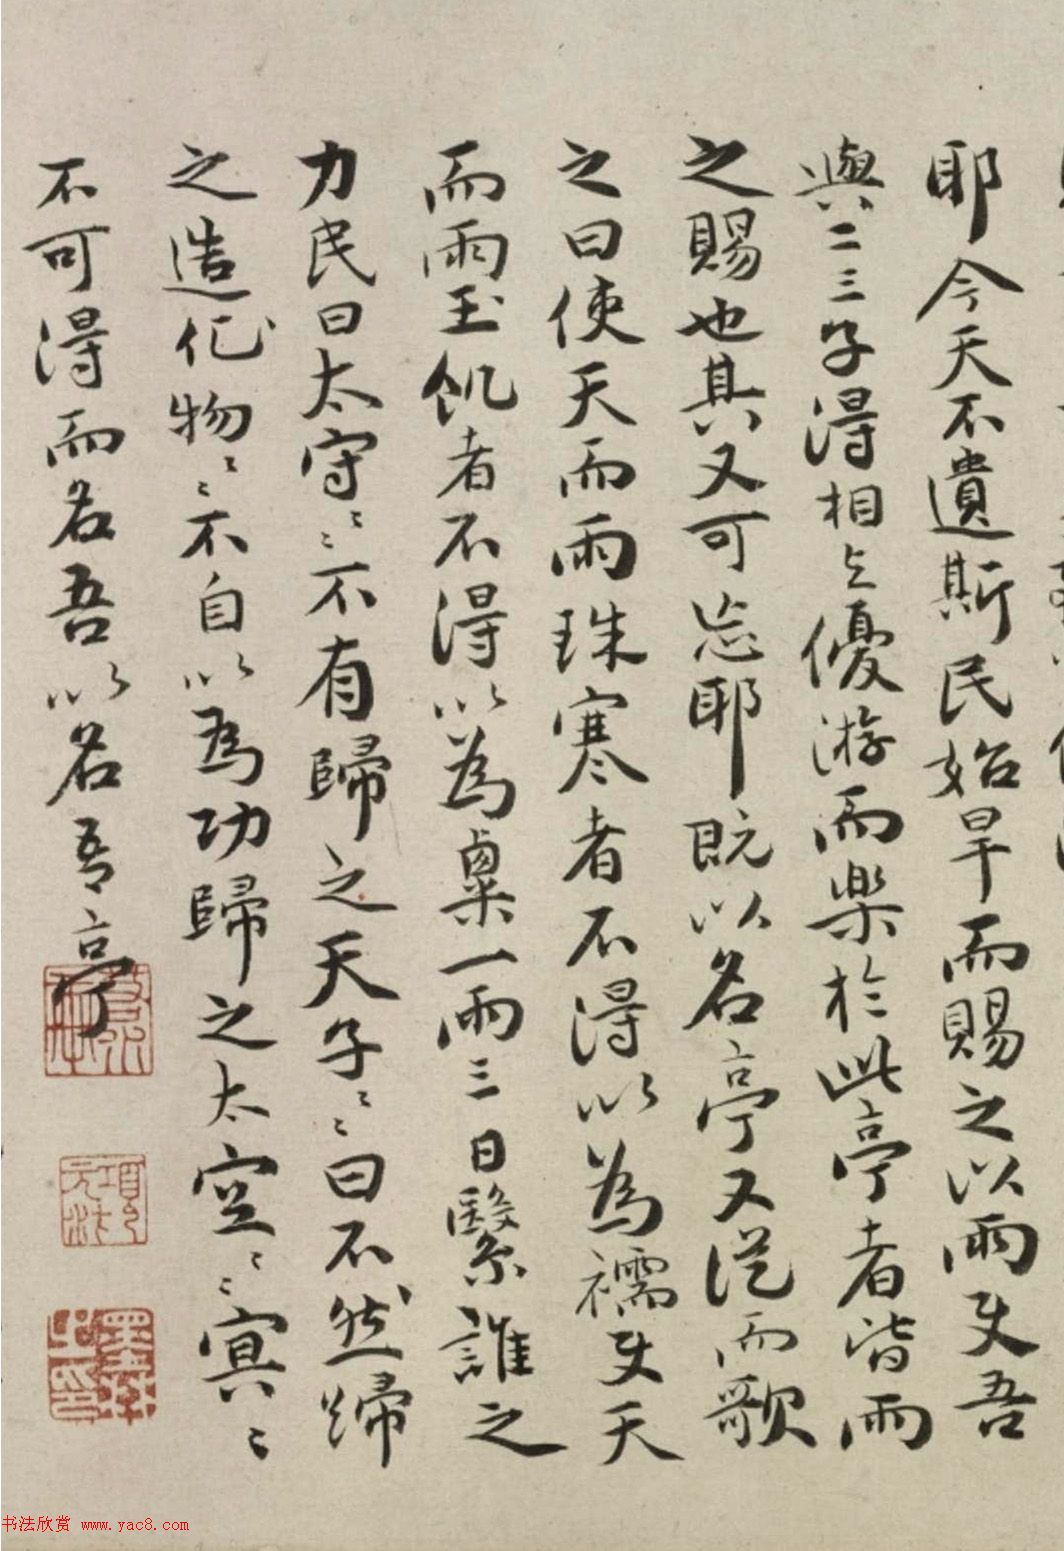 耶今天不遺斯民始旱而賜之以雨使吾
與二三子得相与優游而樂於此亭者皆雨
之賜也其又可忘耶既以名亭又從而歌
之曰使天而雨珠寒者不得以為襦使天
而雨玉飢者不得以為粟一雨三日繄誰之
力民曰太守〻〻不有歸之天子〻〻曰不然歸
之造化物〻〻不自以為功歸之太空〻〻冥〻
不可得而名吾以名吾亭
项元汴印
书法欣赏 www.yac8.com